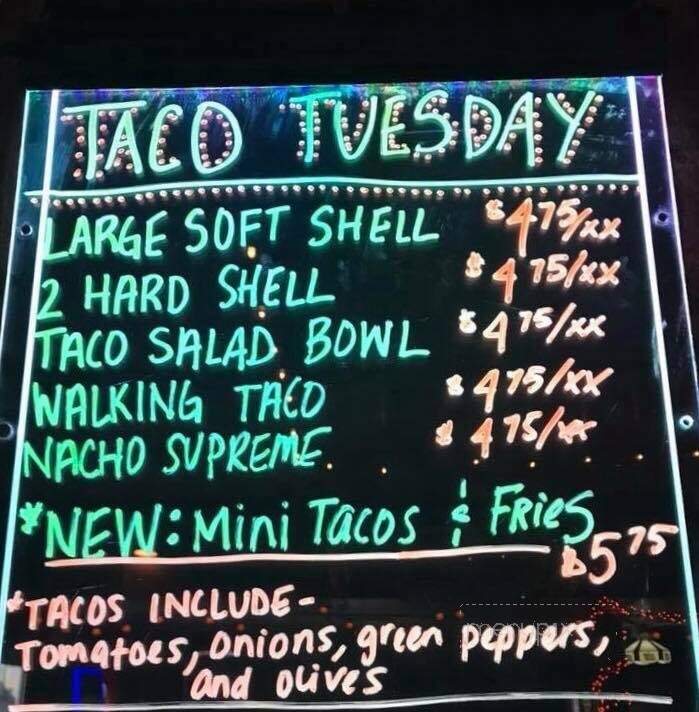 TACO TUESDAY
LARGE SOFT SHELL $475/xx
2 HARD SHELL $475/xx
TACO SALAD BOWL $475/xx
WALKING TACO $475/xx
NACHO SUPREME $475/xx
*NEW: Mini Tacos & Fries
$575
*TACOS INCLUDE-
Tomatoes, onions, green peppers,
and olives